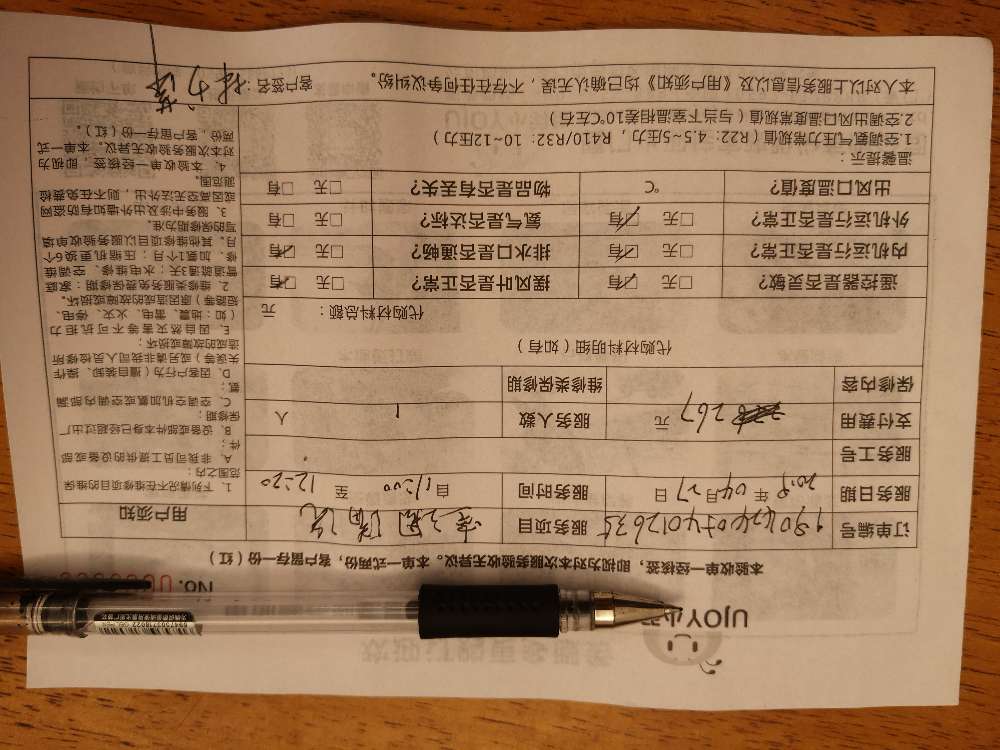 UJOY
No.
本验收单一经核签,即视为对本次服务验收无异议。本单一式两份,客户留存一份(红)
订单编号
服务项目
用户须知
服务日期 2019 年 04 月 27 日 服务时间 自 11:00 至 12:20
服务工号
支付费用 267 元 服务人数 1 人
保修内容 维修类保修期
代购材料明细(如有)
代购材料总额: 元
遥控器是否灵敏? □无 ☑有 摆风叶是否正常? □无 ☑有
内机运行是否正常? □无 ☑有 排水口是否通畅? □无 ☑有
外机运行是否正常? □无 ☑有 氨气是否达标? □无 □有
出风口温度值? ℃ 物品是否有丢失? □无 □有
温馨提示:
1.空调氨气压力常规值(R22:4.5~5压力,R410/R32:10~12压力)
2.空调出风口温度常规值(与当与室温相差10℃左右)
本人对以上服务信息以及《用户须知》均已确认无误,不存在任何争议纠纷。 客户签名:
1、下列情况不在维修项目的维保
范围之内:
A、非我司员工提供的设备或部
件;
B、设备或部件本身已经超过出厂
保修期;
C、空调空机加氟或空调内部漏
氟;
D、因客户行为(擅自装卸、操作
失误等)或另请非我司人员检修所
造成的故障或损坏;
E、因自然灾害等不可抗拒力
(如:地震、雷电、火灾、停电、
短路等)原因造成的故障或损坏。
2、维修类服务免费保修期:家庭
管道疏通3天;水电维修、空调维
修、加氟1个月;压缩机更换6个
月。其他维修项目以服务验收单填
写的保修期为准。
3、服务中涉及出外墙如有防盗网
或因高空无法外出,则不在免费检
测范围。
4、本验收单一经核签,即视为
对本次服务验收无异议。本单一式
两份,客户留存一份(红)。